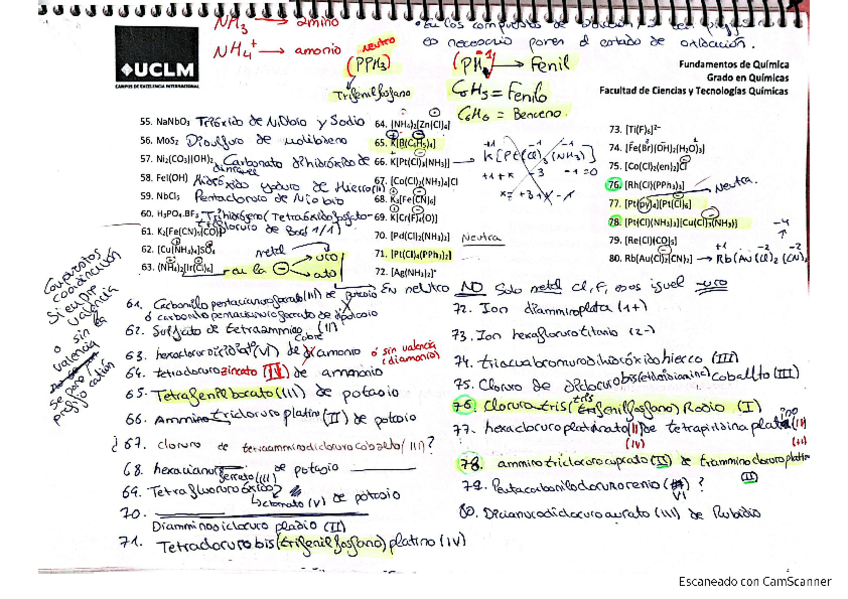 NH3 → amino
NH4+ → amonio
En los compuestos de
es necesario poner el estado de oxidación.
neutro
(PPH3)
Trifenilfosfano
(PH → Fenil
C6H5 = Fenilo
C6H6 = Benceno.
UCLM
CAMPUS DE EXCELENCIA INTERNACIONAL
Fundamentos de Química
Grado en Químicas
Facultad de Ciencias y Tecnologías Químicas
55. NaNbO3 Trióxido de Niobio y Sodio
56. MoS2 Disulfuro de molibdeno
57. Ni2(CO3)(OH)2 Carbonato dihidróxido de
58. FeI(OH) Hidróxido yoduro de Hierro(II)
59. NbCl5 Pentacloruro de Niobio
60. H3PO4.BF3
61. K3[Fe(CN)5(CO)]
62. [Cu(NH3)4]SO4 metal
63. (NH4)2[Ir(Cl)6] uro
ato
64. [NH4]2[Zn(Cl)4]
65. K[B(C6H5)4]
66. K[Pt(Cl)3(NH3)] → K[Pt(Cl)3(NH3)]
67. [Co(Cl)2(NH3)4]Cl
68. K3[Fe(CN)6]
69. K[Cr(F)4(O)]
70. [Pd(Cl)2(NH3)2] Neutra
71. [Pt(Cl)4(PPh3)2]
72. [Ag(NH3)2]+
73. [Ti(F)6]2-
74. [Fe(Br)(OH)2(H2O)3]
75. [Co(Cl)2(en)2]Cl
76. [Rh(Cl)(PPh3)3] Neutra.
77. [Pt(py)4][Pt(Cl)6]
78. [Pt(Cl)(NH3)3][Cu(Cl)3(NH3)]
79. [Re(Cl)(CO)5]
80. Rb[Au(Cl)2(CN)2] → Rb[Au(Cl)2(CN)2
En neutro NO Solo metal Cl, F, esos igual -uro
Compuestos
coordinación
Siempre
valencia
o sin la
valencia
se pone
prefijo catión
61. Carbonilo pentacianuroferrato(II) de potasio
ó carbonilo pentacianuroferrato de
62. Sulfato de tetraammino (II)
Cobre
63. hexacloruro (VI) de amonio ó sin valencia
(diamonio)
64. tetracloruro zincato (IV) de ammonio
65. Tetrafenilborato (III) de potasio
66. Ammino tricloruro platino (II) de potasio
¿ 67. cloruro de tetraamminodicloruro cobalto (III)?
68. hexacianuro de potasio
ferrato (III)
69. Tetrafluoruro óxido
cromato (V) de potasio
70.
Diamminodicloruro pladio (II)
71. Tetracloruro bis (trifenilfosfano) platino (IV)
72. Ion diamminoplata (1+)
73. Ion hexafluoruro titanio (2-)
74. triacuabromurodihidróxido hierro (III)
75. Cloruro de diclorurobis(etilendiamina) cobalto (III)
76. Cloruro tris (trifenilfosfano) Rodio (I)
77. hexacloruro platinato de tetrapiridina
(IV)
78. ammino tricloruro cuprato (II) de triammino cloruro platin
(II)
79. Pentacarbonilo cloruro renio ?
VI
80. Dicianurodicloruro aurato (III) de Rubidio
Escaneado con CamScanner